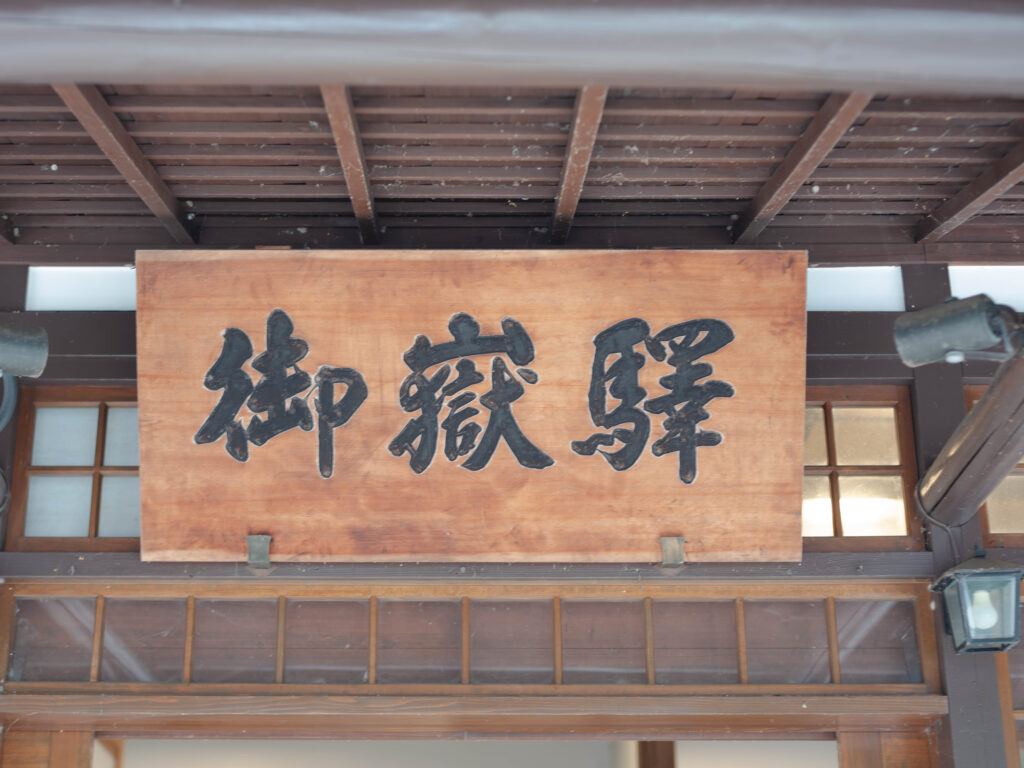 御嶽驛